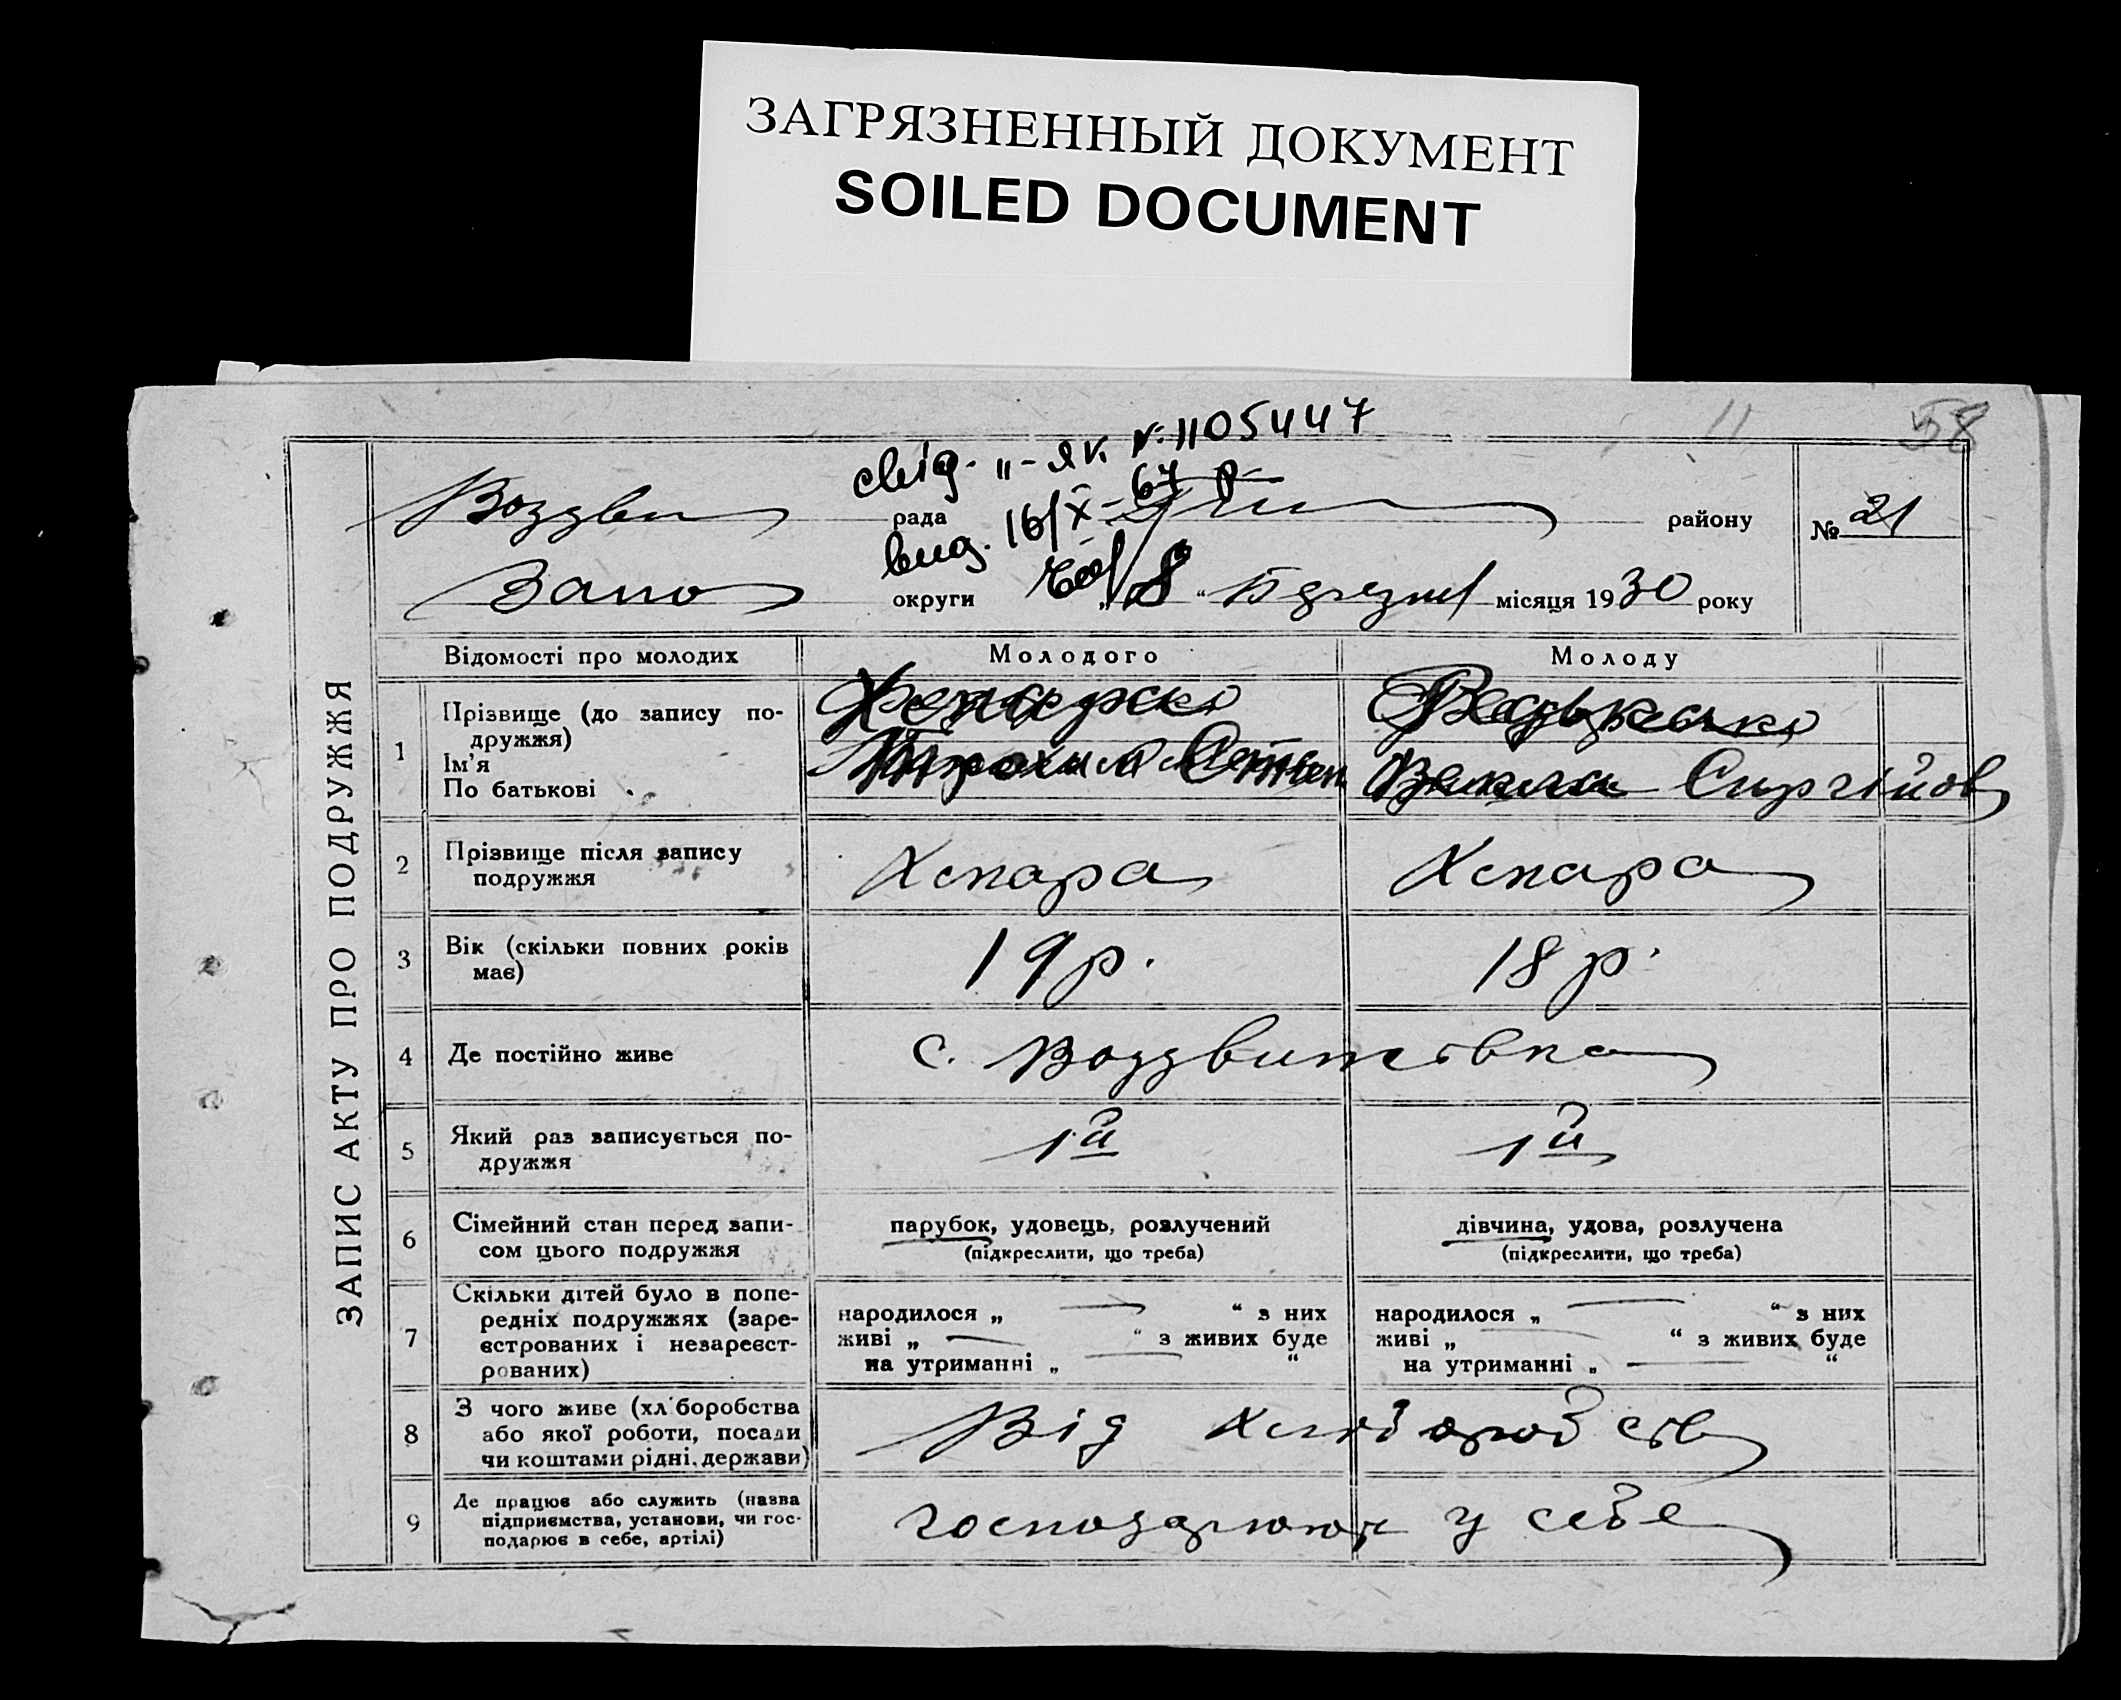 ЗАГРЯЗНЕННЫЙ ДОКУМЕНТ
SOILED DOCUMENT
11 58
свід. "-ЯК №1105447
Воздви рада району № 21
вид. 16/X-67 р
Запо округи „8“ Березня місяця 1930 року
ЗАПИС АКТУ ПРО ПОДРУЖЖЯ
Відомості про молодих Молодого Молоду
1 Прізвище (до запису подружжя)
Ім'я
По батькові
Трохим Степ Векла Сиргійов
2 Прізвище після запису подружжя Хспара Хспара
3 Вік (скільки повних років має) 19 р. 18 р.
4 Де постійно живе с. Воздвижівка
5 Який раз записується подружжя 1й 1й
6 Сімейний стан перед записом цього подружжя парубок, удовець, розлучений дівчина, удова, розлучена
(підкреслити, що треба) (підкреслити, що треба)
7 Скільки дітей було в попередніх подружжях (зареєстрованих і незареєстрованих)
народилося „ — “ з них народилося „ — “ з них
живі „ — “ з живих буде живі „ — “ з живих буде
на утриманні „ — “ на утриманні „ — “
8 З чого живе (хліборобства або якої роботи, посади чи коштами рідні, держави) Від хліборобств
9 Де працює або служить (назва підприємства, установи, чи господарює в себе, артілі) господарюють у себе